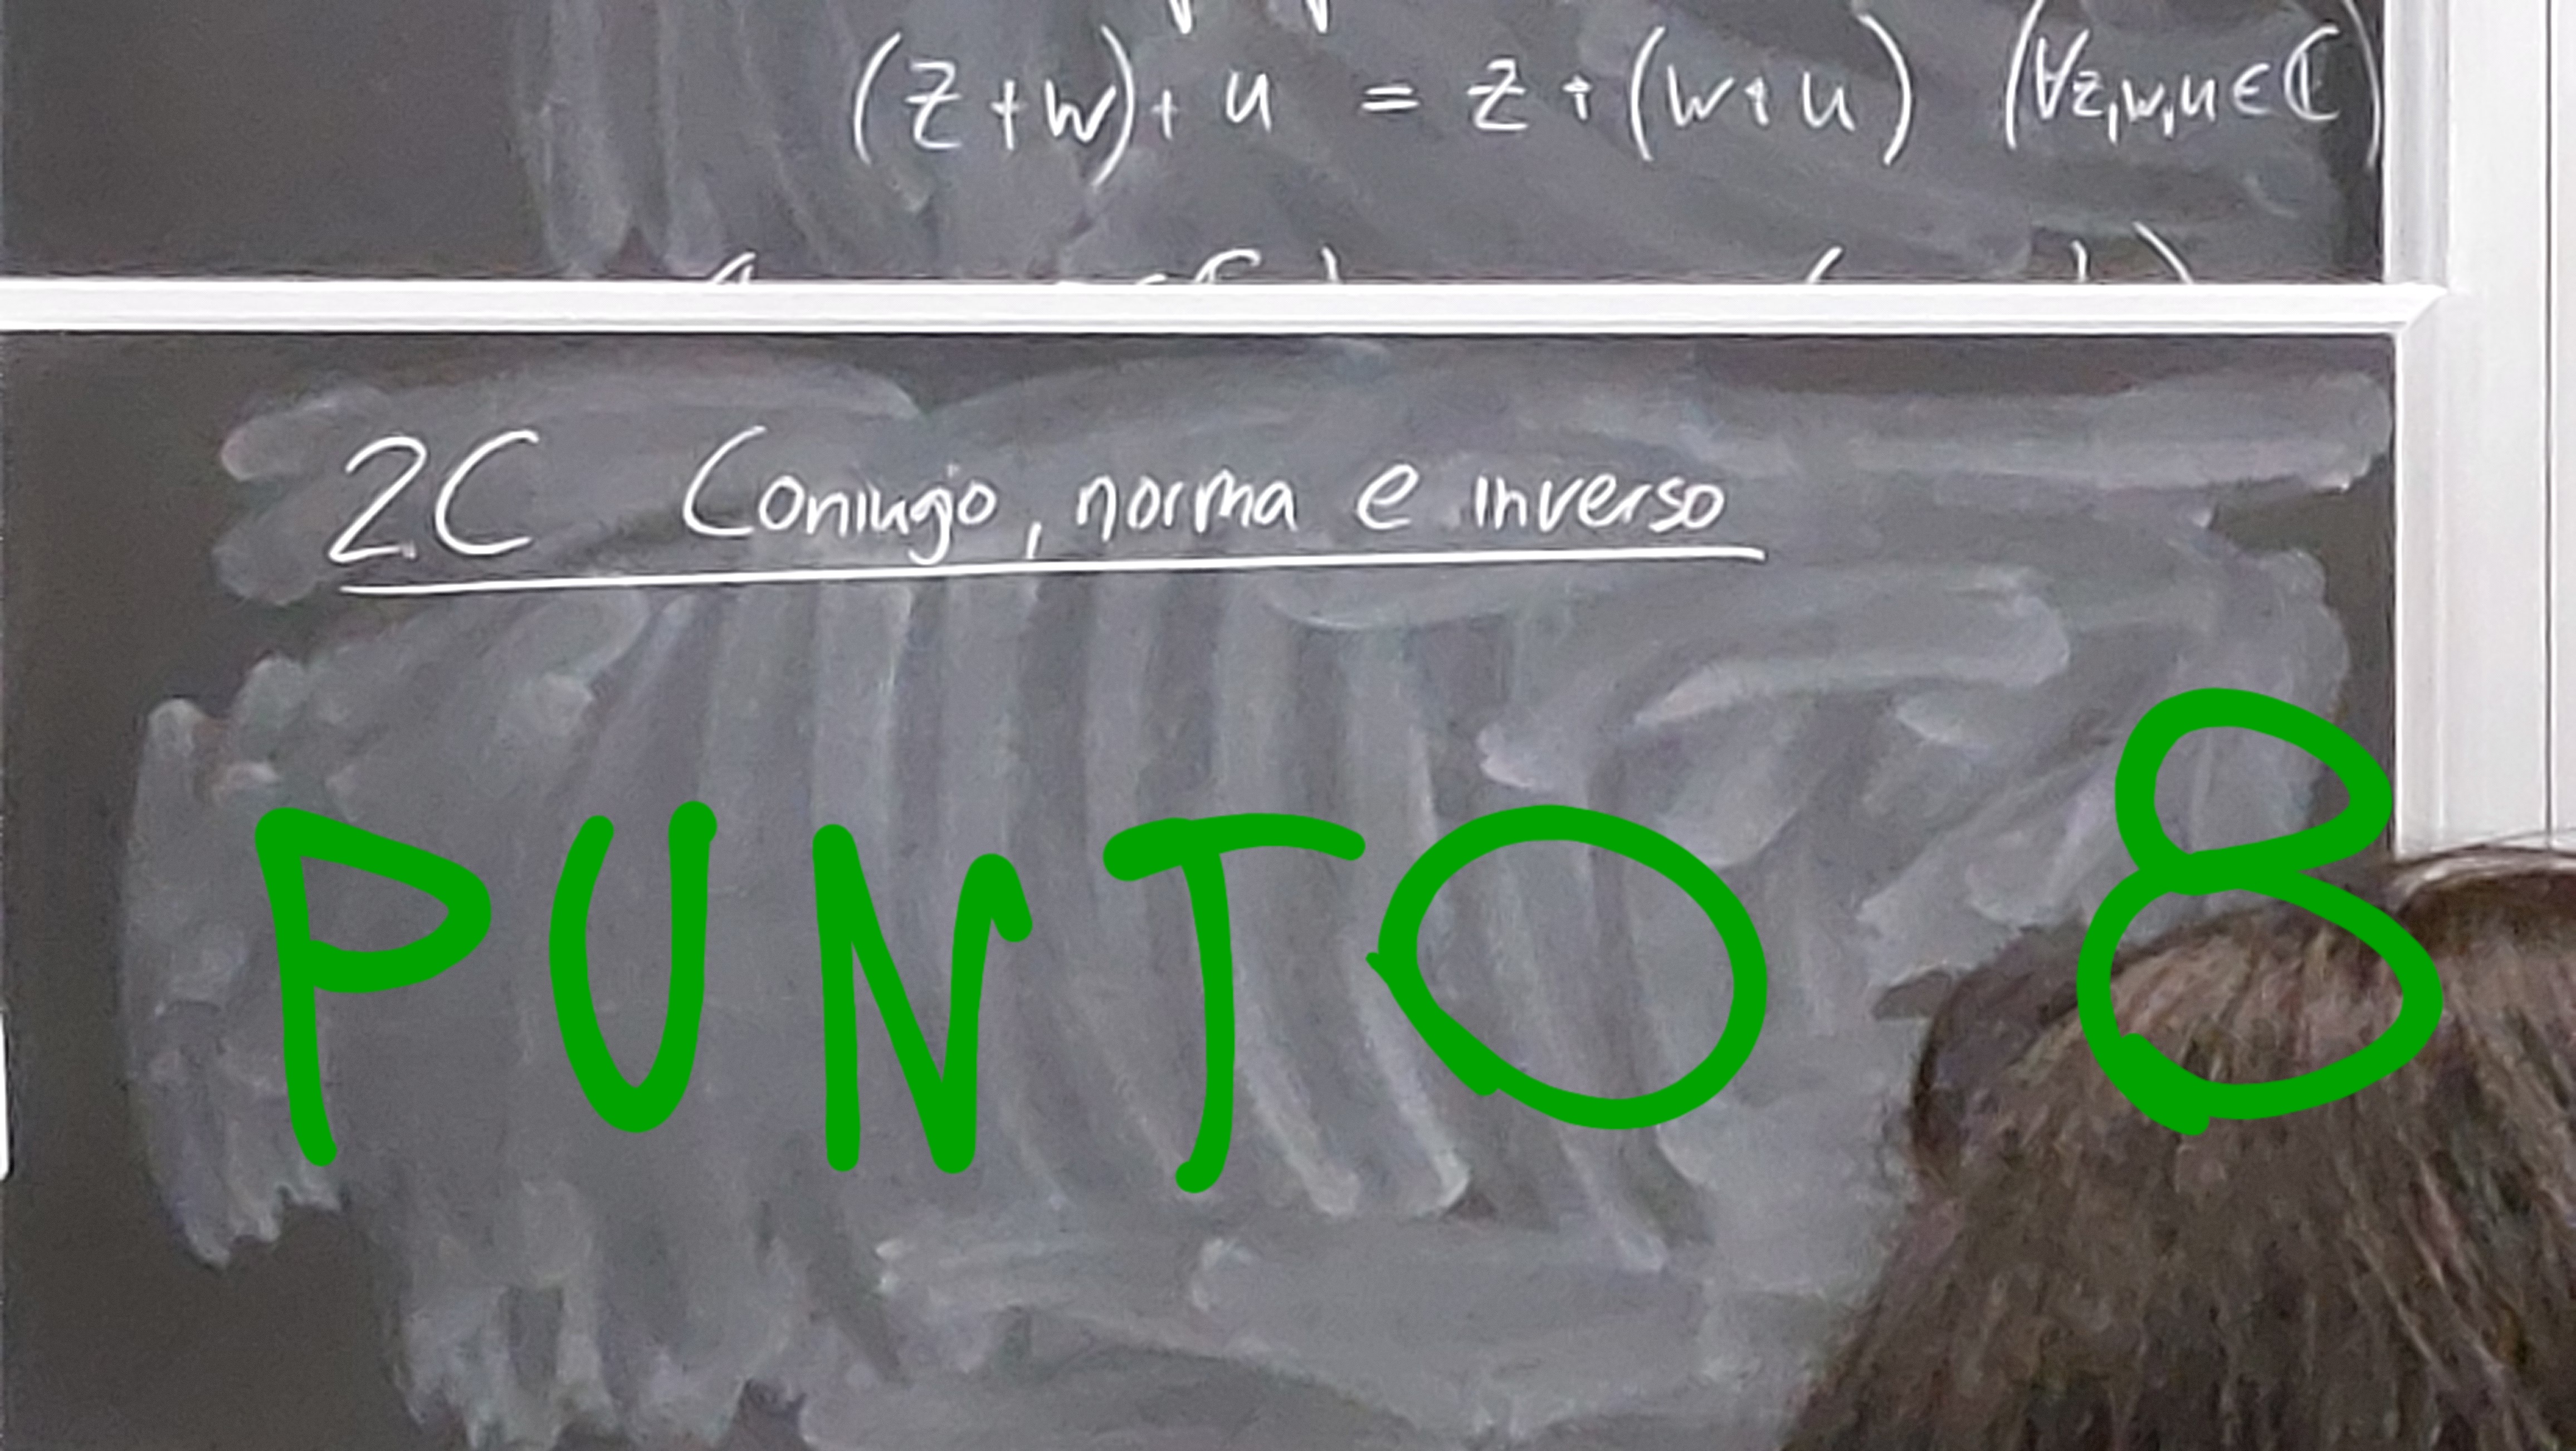 (z+w)+u = z+(w+u) (∀z,w,u∈ℂ)
2C Coniugio, norma e inverso
PUNTO 8